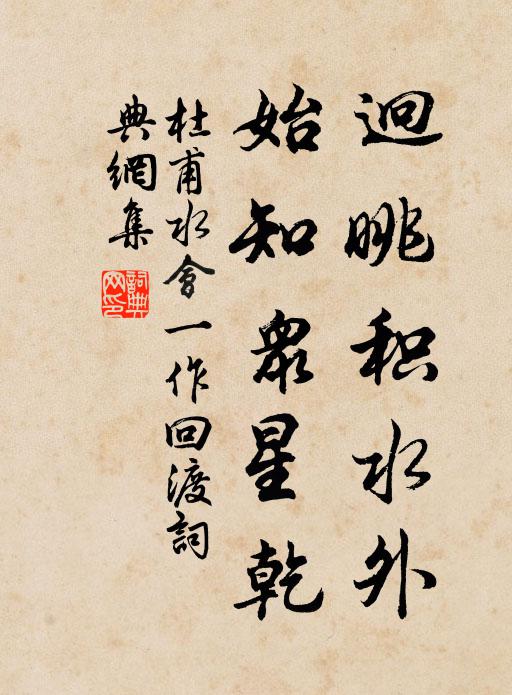 迥眺积水外
始知衆星乾
杜甫水會一作回渡詞
典網集
詞典网印